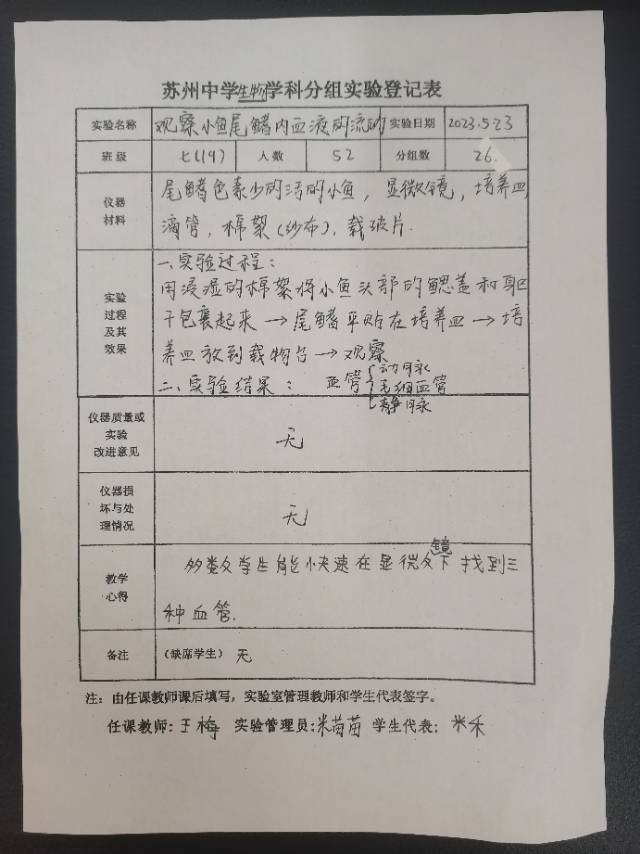 苏州中学生物学科分组实验登记表
实验名称 观察小鱼尾鳍内血液的流动 实验日期 2023.5.23
班级 七(19) 人数 52 分组数 26.
仪器
材料
尾鳍色素少的活的小鱼，显微镜，培养皿
滴管，棉絮(纱布)，载玻片.
实验
过程
及其
效果
一、实验过程：
用浸湿的棉絮将小鱼头部的鳃盖和躯
干包裹起来→尾鳍平贴在培养皿→培
养皿放到载物台→观察
二、实验结果： 血管{动脉
毛细血管
静脉
仪器质量或
实验
改进意见
无
仪器损
坏与处
理情况
无
教学
心得
多数学生能快速在显微镜下找到三
种血管.
备注 (缺席学生) 无
注：由任课教师课后填写，实验室管理教师和学生代表签字。
任课教师：王梅 实验管理员：米苗苗 学生代表：米禾